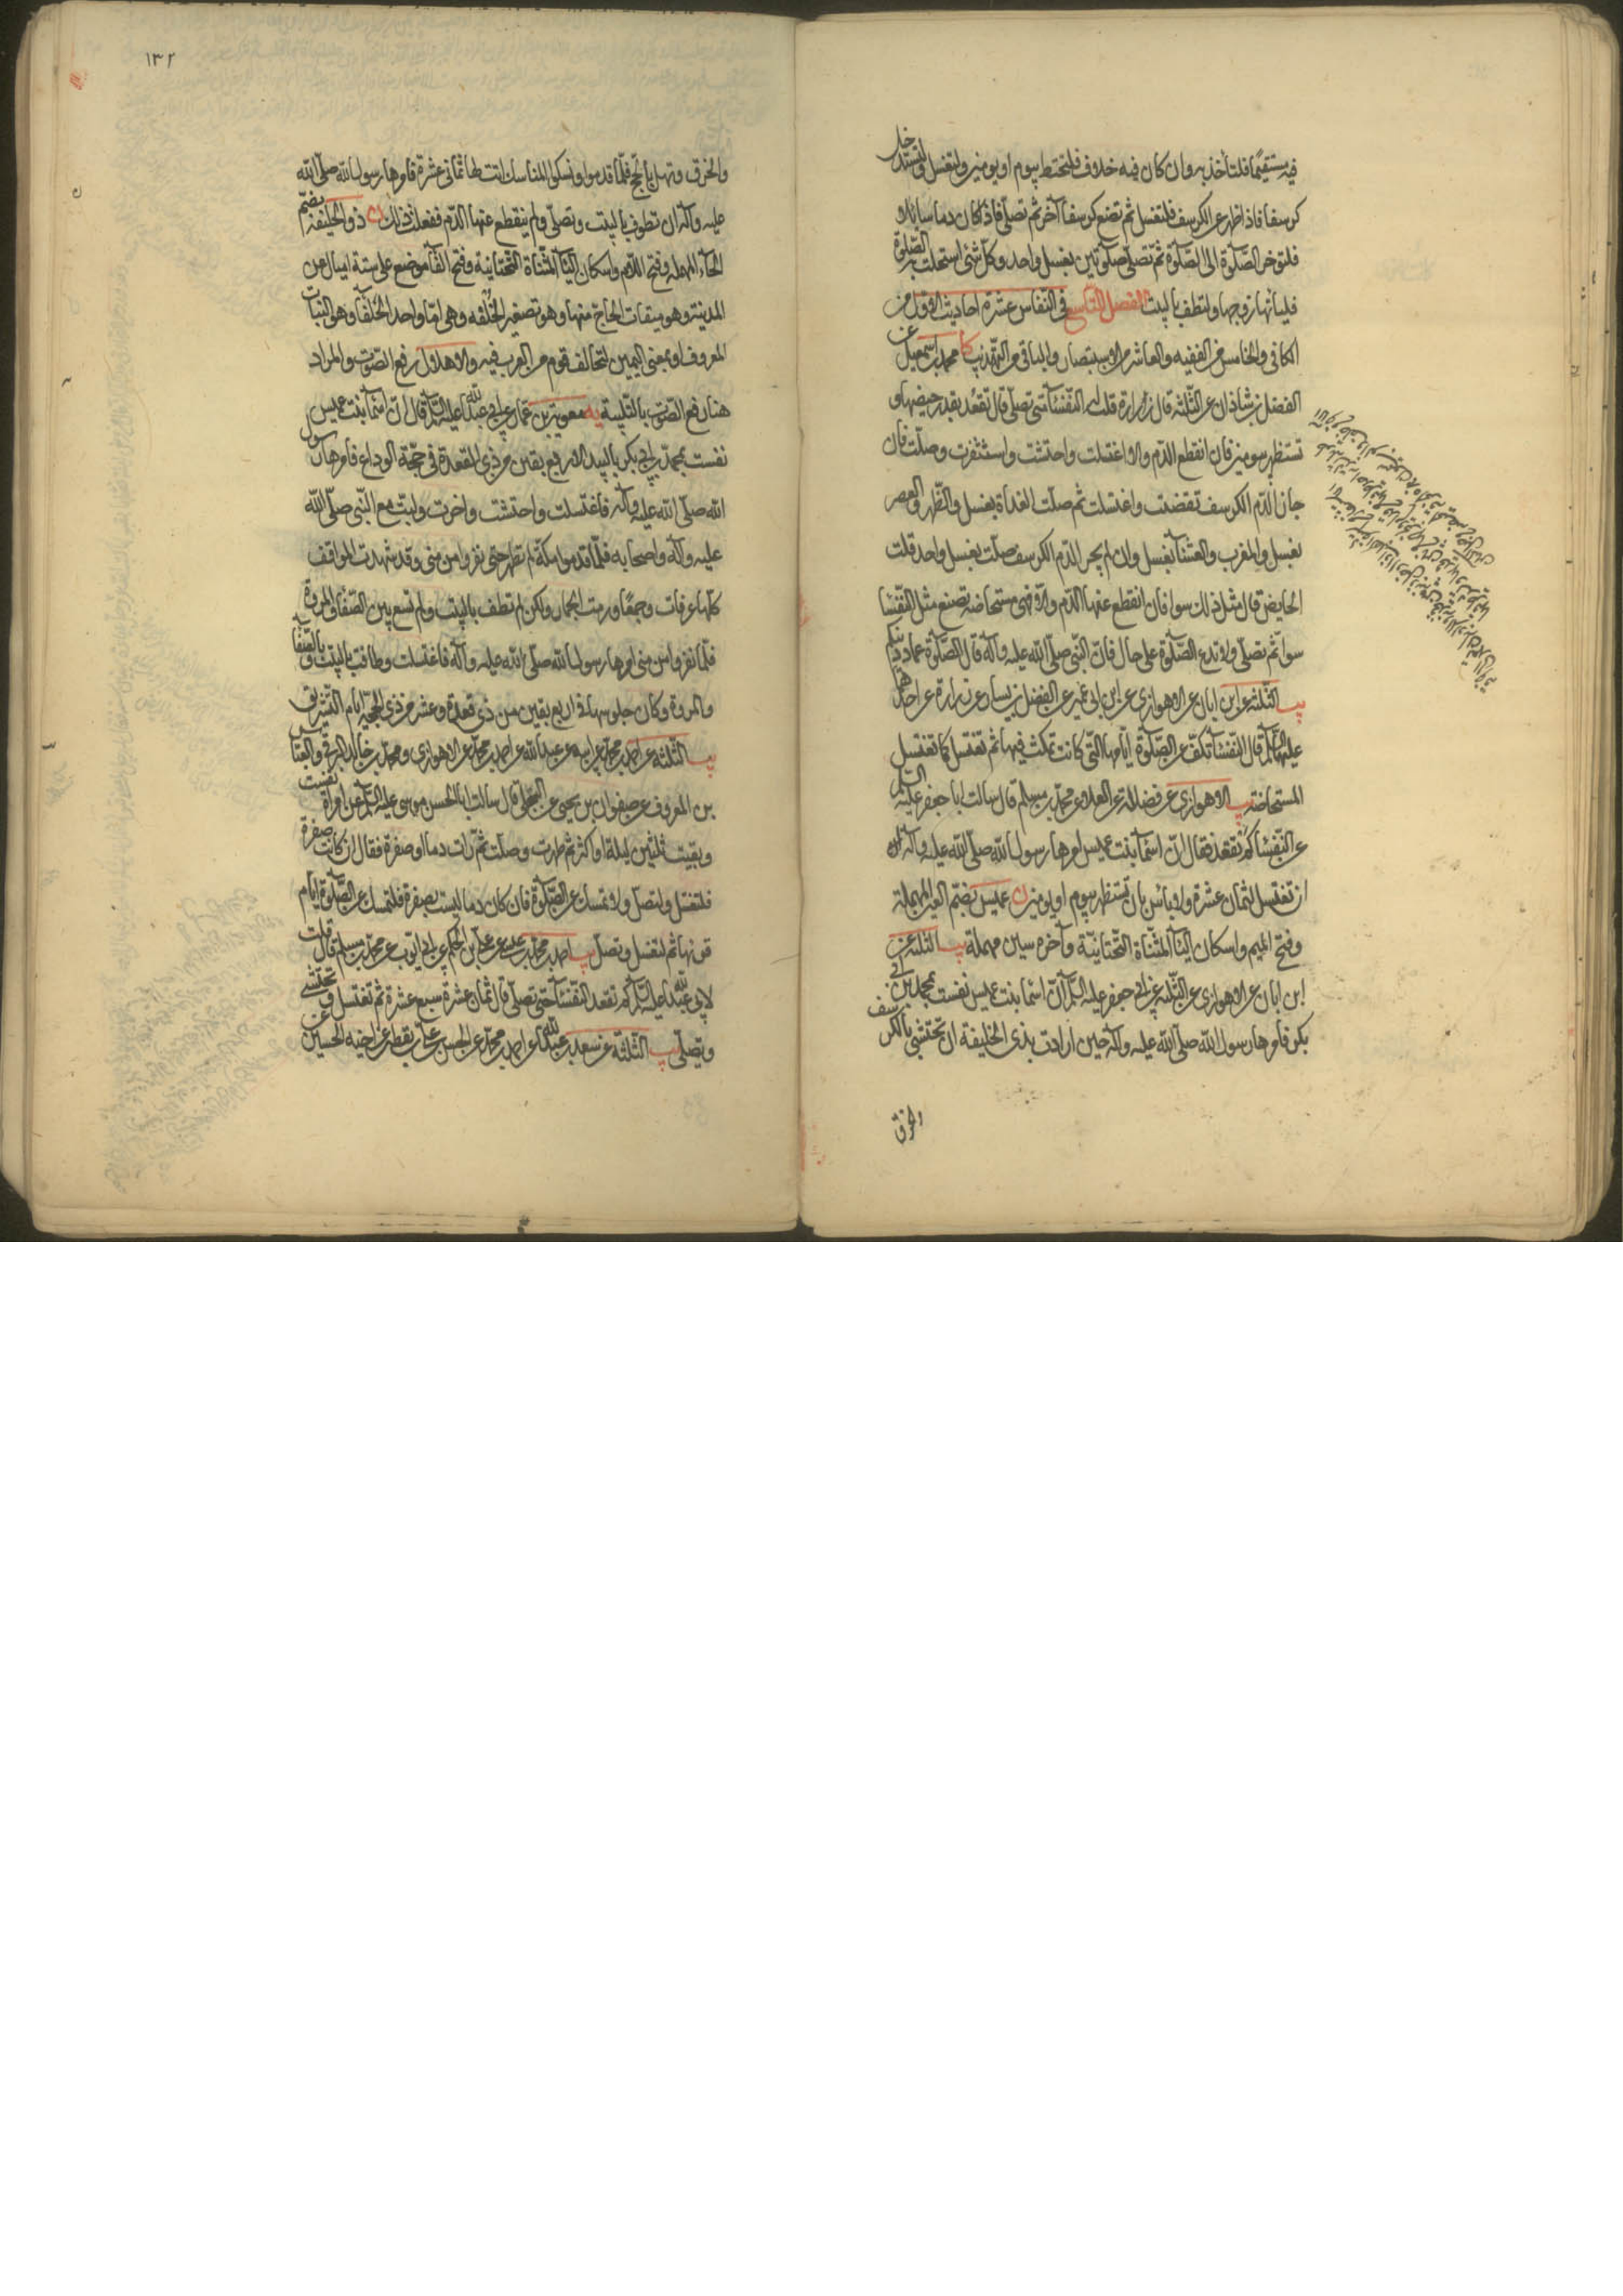 فيه مستقيما فلتأخذ به وان كان فيه خلاف فلتحتط بيوم او يومين ولتغتسل ولتستدخل
كرسفا فاذا ظهر عن الكرسف فلتغتسل ثم تضع كرسفا آخر ثم تصلّي فاذا كان دما سايلا و
فلتؤخر الصّلوة الى الصّلوة ثمّ تصلّي صلوتين بغسل واحد وكلّ شئ استحلت به الصّلوة
فلياتها زوجها ولتطف بالبيت الفصل التّاسع في النّفاس عشرة احاديث الاوّل من
الكافي والخامس من الفقيه والعاشر من الاستبصار والباقي من التّهذيب كا محمد بن اسمعيل عن
الفضل بن شاذان عن الثّلثة قال زرارة قلت له النّفسآء متى تصلّي قال تقعد بقدر حيضها و
تستظهر بيومين فان انقطع الدّم والا اغتسلت واحتشت واستثفرت وصلّت فان
جاز الدّم الكرسف تعصّبت واغتسلت ثم صلّت الغداة بغسل والظّهر والعصر
بغسل والمغرب والعشآء بغسل وان لم يجز الدّم الكرسف صلّت بغسل واحد قلت
الحايض قال مثل ذلك سوا فان انقطع عنها الدّم والا فهي مستحاضه تصنع مثل النّفسا
سوا ثم تصلّي ولا تدع الصّلوة على حال فانّ النّبي صلّى الله عليه وآله قال الصّلوة عماد دينكم
يب الثّلثه عن ابن ابان عن الاهوازي عن ابن ابي عمير عن الفضيل بن يسار عن زرارة عن احدهما
عليهما السّلم قال النّفسآء تكفّ عن الصّلوة ايّامها الّتي كانت تمكث فيها ثم تغتسل كما تغتسل
المستحاضة يب الاهوازي عن فضالة عن العلاء عن محمّد بن مسلم قال سالت ابا جعفر عليه السّلم
عن النّفسآء كم تقعد فقال انّ اسمآء بنت عميس امرها رسول الله صلّى الله عليه وآله
ان تغتسل لثمان عشرة ولا بأس بان تستظهر بيوم او يومين ن عميس بضمّ العين المهملة
وفتح الميم واسكان اليآء المثنّاة التّحتانيّة وآخره سين مهملة يب الثلثه عن
ابن ابان عن الاهوازي عن الثّلثه عن ابي جعفر عليه السّلم انّ اسما بنت عميس نفست بمحمد بن ابي
بكر فامرها رسول الله صلّى الله عليه وآله حين ارادت بذي الحليفة ان تحتشي بالكرسف
والخرق
١٣٢
والخرق وتهل بالحجّ فلمّا قدموا ونسكوا المناسك اتت لها ثماني عشرة فامرها رسول الله صلّى الله
عليه وآله ان تطوف بالبيت وتصلّي ولم ينقطع عنها الدّم ففعلت ذلك ن ذو الحليفة بضمّ
الحآء المهمله وفتح اللّام واسكان اليآء المثنّاة التّحتانيّة وفتح الفآء موضع على ستة اميال من
المدينة وهو ميقات الحاج منها وهو تصغير الحلفه وهي امّا واحد الحلفآء وهو النّبات
المعروف او بمعنى اليمين لتحالف قوم من العرب فيه والاهلال رفع الصّوت والمراد
هنا رفع الصّوت بالتّلبية يه معوية بن عمار عن ابي عبد الله عليه السّلم قال انّ اسمآء بنت عميس
نفست بمحمّد بن ابي بكر بالبيدا لاربع بقين من ذي القعدة في حجّة الوداع فامرها رسول
الله صلّى الله عليه وآله فاغتسلت واحتشت واحرمت ولبّت مع النّبي صلّى الله
عليه وآله واصحابه فلمّا قدموا مكّة لم تطهر حتى نفروا من منى وقد شهدت المواقف
كلّها عرفات وجمعًا ورمت الجمار ولكن لم تطف بالبيت ولم تسع بين الصّفا والمروة
فلمّا نفروا من منى امرها رسول الله صلّى الله عليه وآله فاغتسلت وطافت بالبيت وبالصّفا
والمروة وكان جلوسها في اربع بقين من ذي قعدة وعشر من ذي الحجة وايام التّشريق
يب الثّلثه عن احمد بن محمد عن ابيه عن عبد الله عن احمد بن محمّد عن الاهوازي ومحمّد بن خالد البرقي والعبّاس
بن المعروف عن صفوان بن يحيى عن البجلي قال سالت ابا الحسن موسى عليه السّلم عن امراة نفست
وبقيت ثلثين ليلة او اكثر ثم طهرت وصلّت ثمّ رات دما او صفرة فقال ان كانت صفرة
فلتغتسل ولتصلّ ولا تمسك عن الصّلوة فان كان دما ليست بصفرة فلتمسك عن الصّلوة ايام
قرئها ثم لتغتسل وتصلّ يب احمد بن محمّد عن علي بن الحكم عن ابي ايّوب عن محمّد بن مسلم قال قلت
لابي عبد الله عليه السّلم كم تقعد النّفسآء حتى تصلّي قال ثمان عشرة سبع عشرة ثم تغتسل وتحتشي
وتصلّي يب الثّلثة عن سعد بن عبد الله عن احمد بن محمّد عن الحسن بن علي بن يقطين عن اخيه الحسين عن